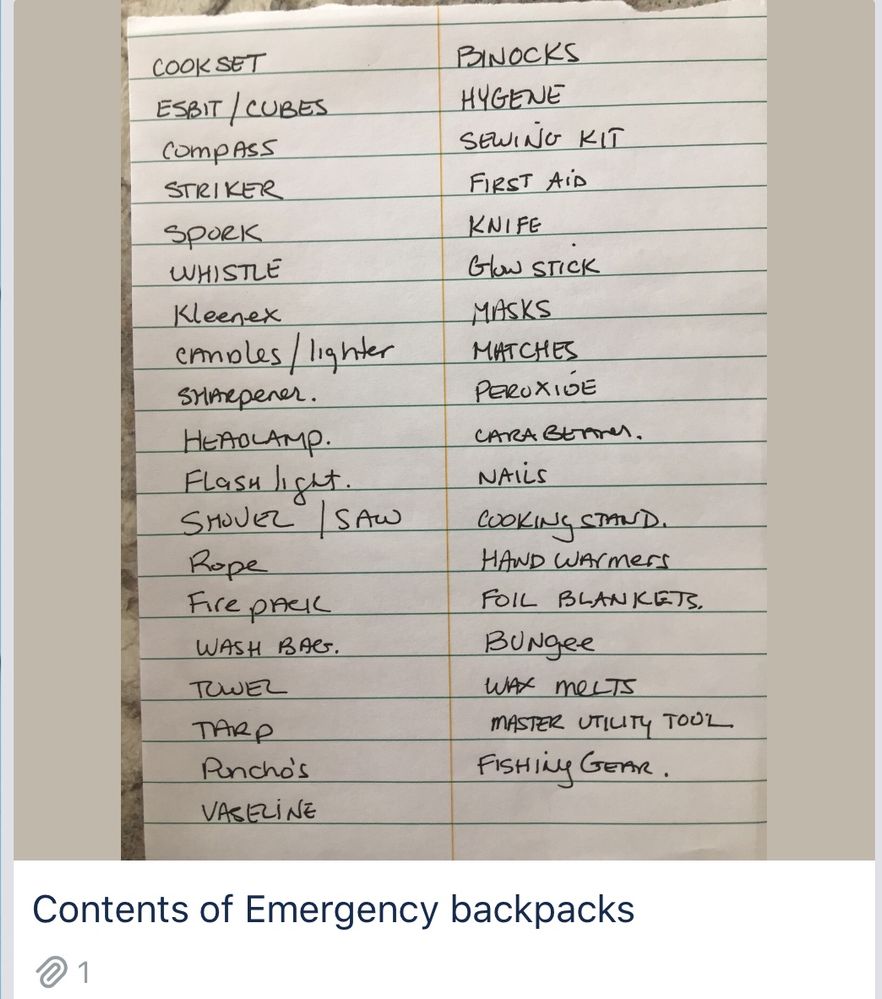 COOKSET
ESBIT / CUBES
COMPASS
STRIKER
SPORK
WHISTLE
Kleenex
CANDLES / lighter
SHARPENER.
HEADLAMP.
FLASH light.
SHOVEL / SAW
Rope
Fire PACK
WASH BAG.
TOWEL
TARP
Poncho's
VASELINE
BINOCKS
HYGENE
SEWING KIT
FIRST AID
KNIFE
Glow STICK
MASKS
MATCHES
PEROXIDE
NAILS
COOKING STAND.
HAND WARMERS
FOIL BLANKETS.
BUNgee
WAX MELTS
MASTER UTILITY TOOL
FISHINg GEAR.
Contents of Emergency backpacks
1